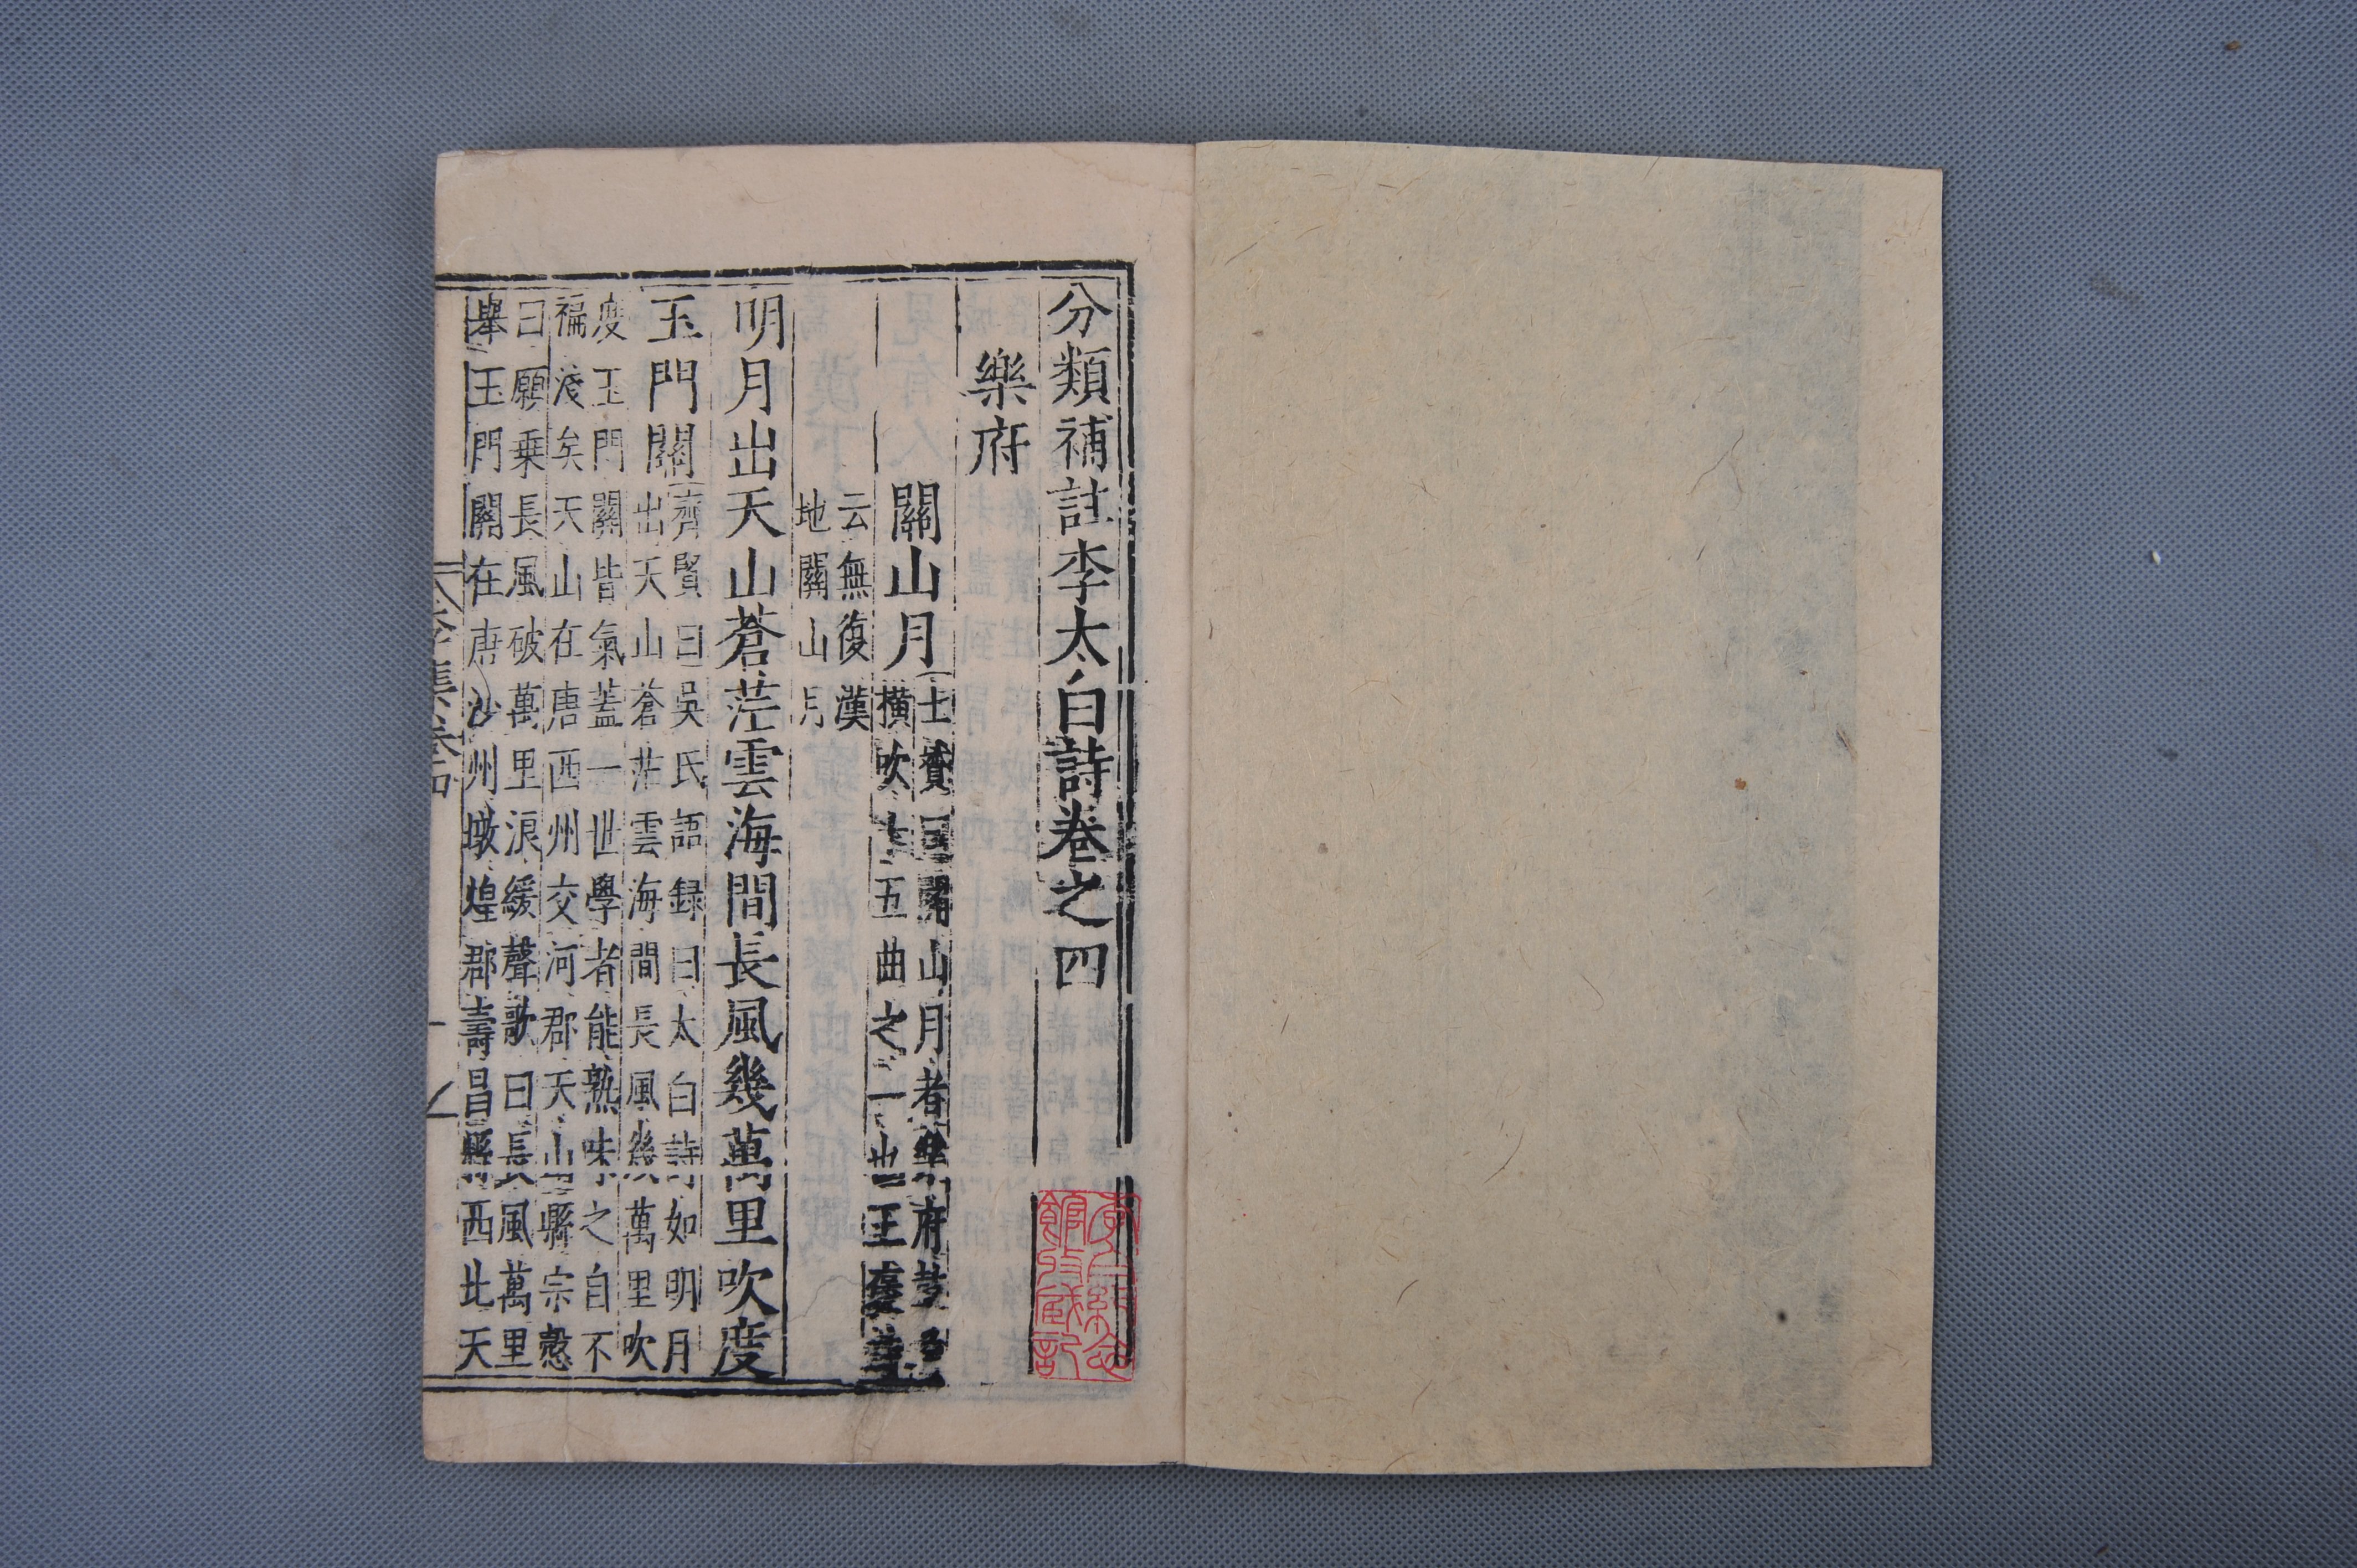 分類補註李太白詩卷之四
樂府
關山月
士贇曰關山月者樂府鼓角
橫吹十五曲之一也王褒詩
云無復漢
地關山月
明月出天山蒼茫雲海間長風幾萬里吹度
玉門關
齊賢曰吳氏語録曰太白詩如明月
出天山蒼茫雲海間長風幾萬里吹
度玉門關皆氣蓋一世學者能熟味之自不
褊淺矣天山在唐西州交河郡天山縣宗慤
曰願乗長風破萬里浪緩聲歌曰長風萬里
舉玉門關在唐沙州墩煌郡壽昌縣西北天
館收藏記